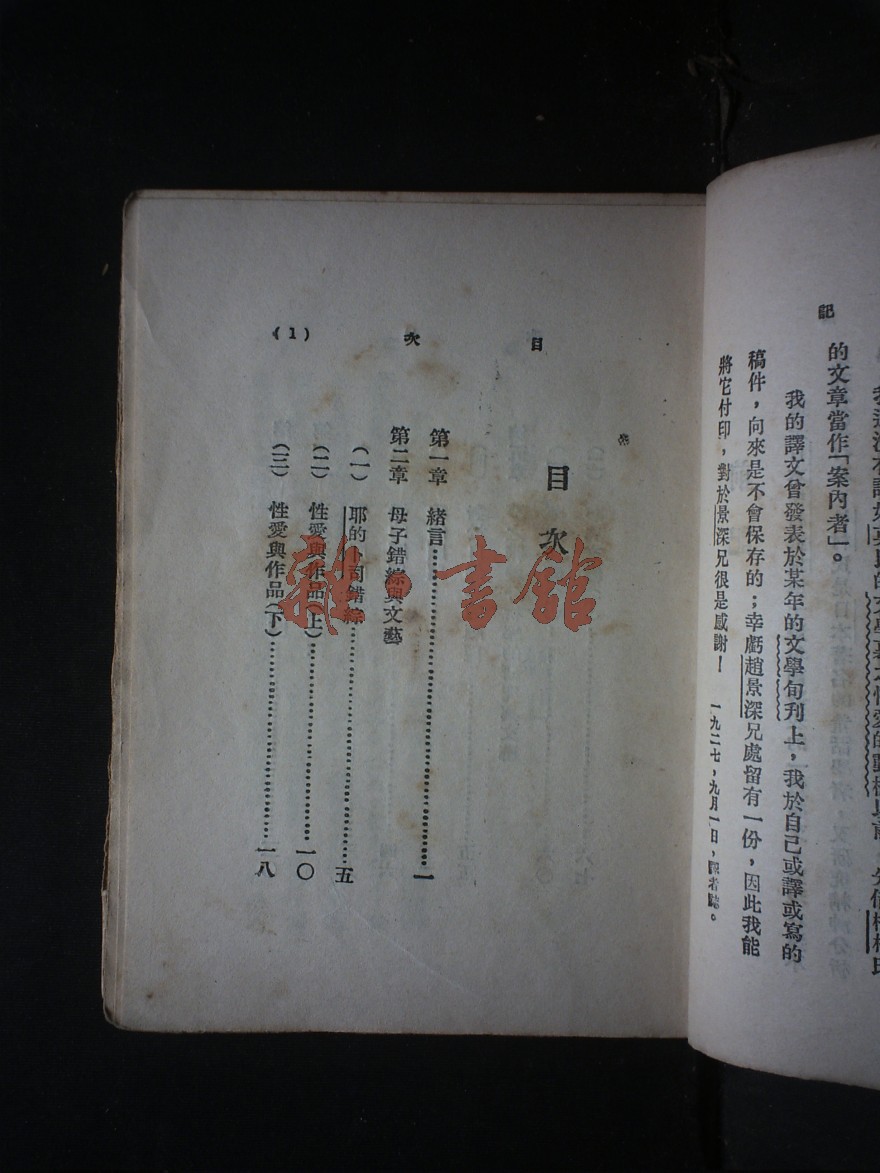 記
的文章當作「案內者」。
我的譯文曾發表於某年的文學旬刊上，我於自己或譯或寫的
稿件，向來是不會保存的；幸虧趙景深兄處留有一份，因此我能
將它付印，對於景深兄很是感謝！
一九二七，九月一日，譯者誌。
目 次 (1)
目 次
第一章 緒言……一
第二章 母子錯綜與文藝
(一) 耶的卜司錯綜……五
(二) 性愛與作品(上)……一〇
(三) 性愛與作品(下)……一八
雜·書館